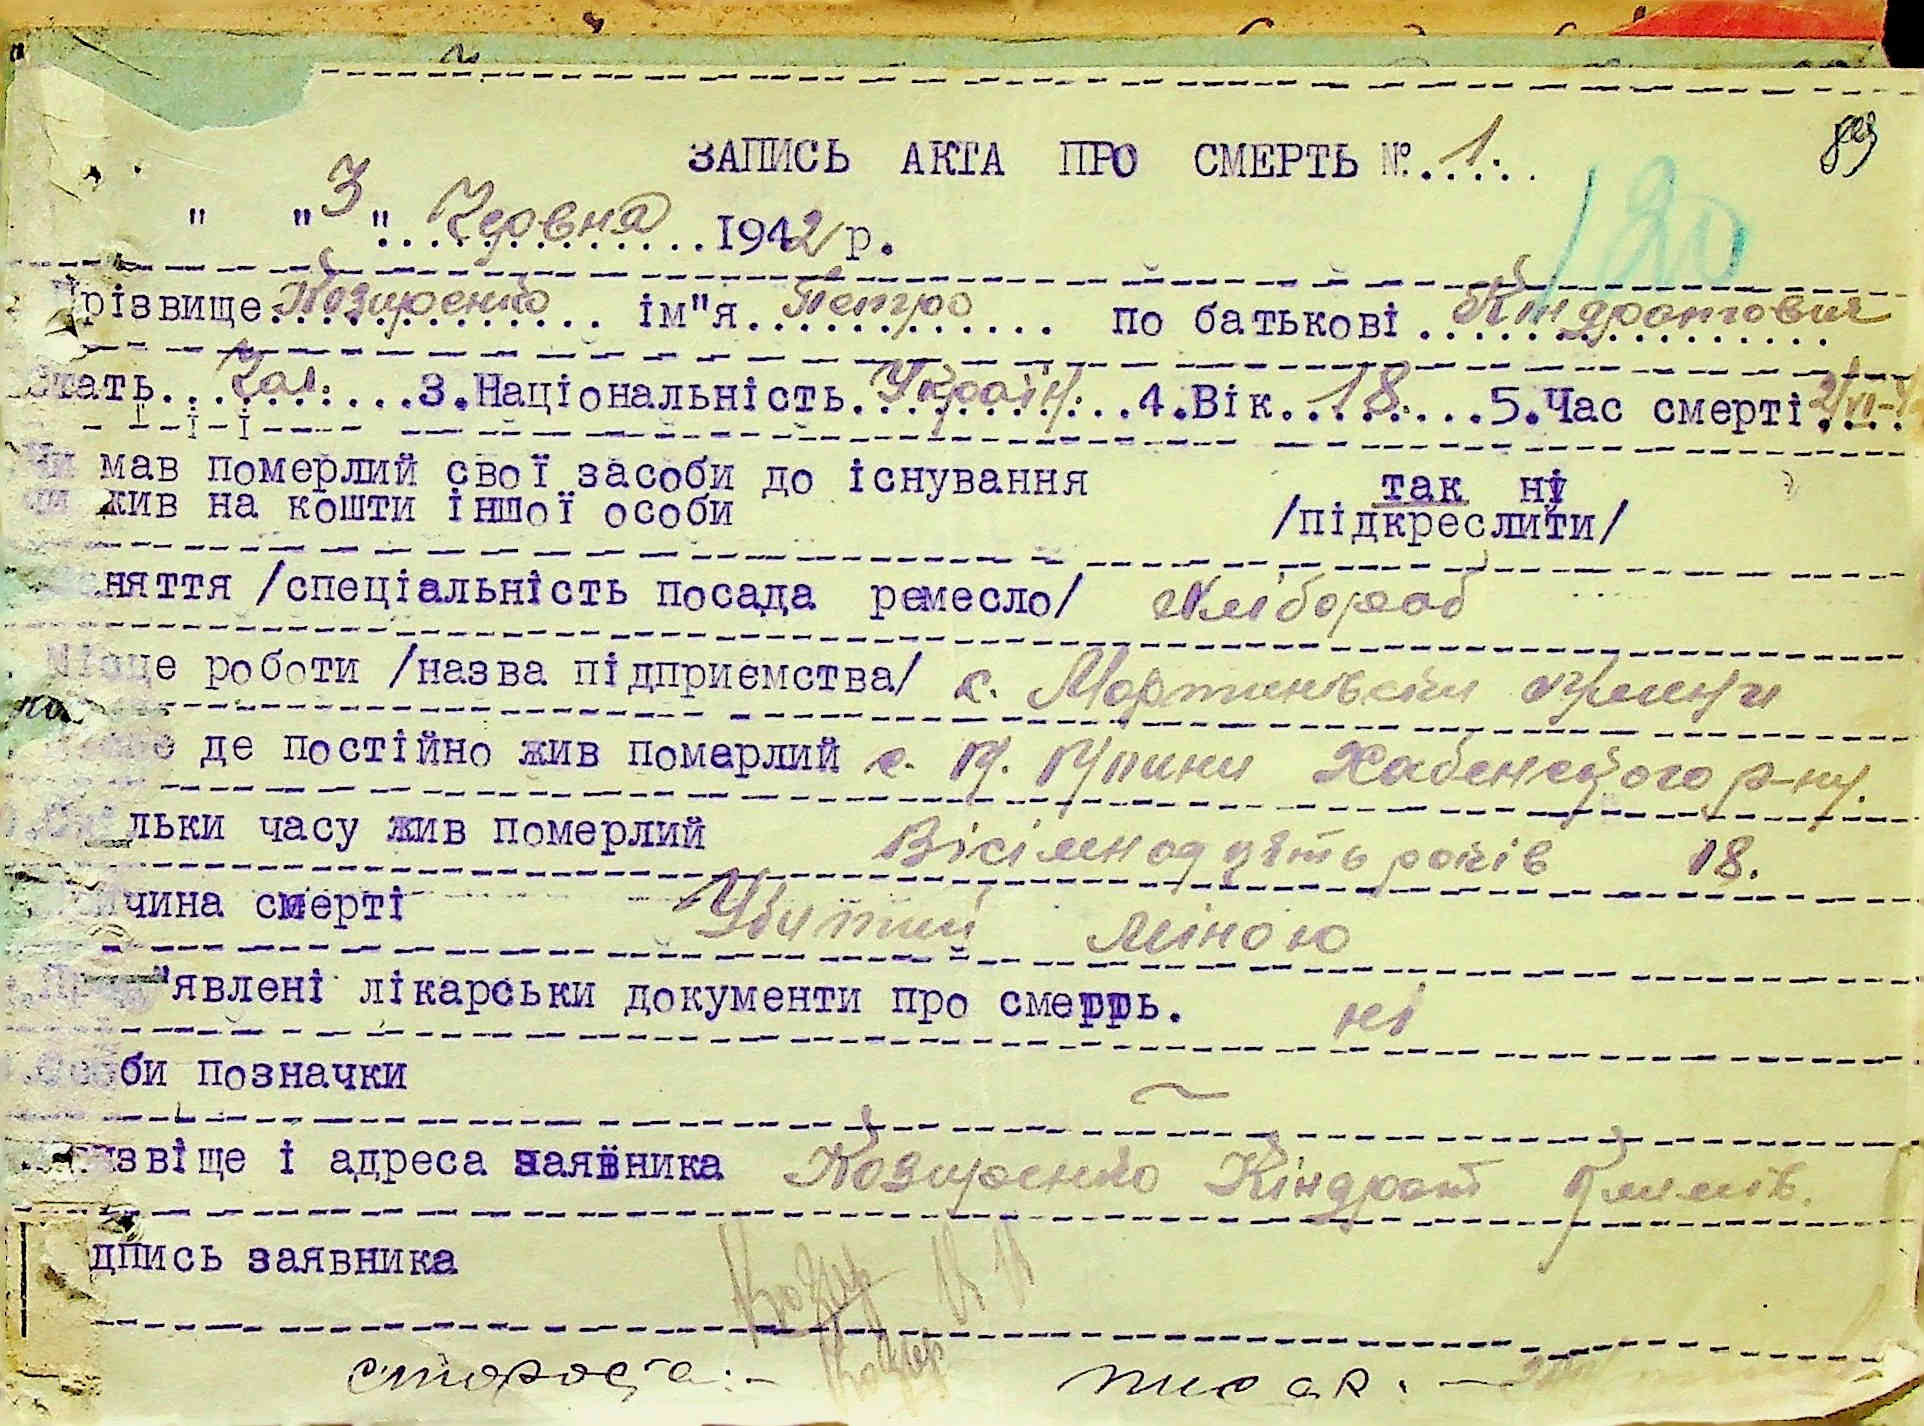 ЗАПИСЬ АКТА ПРО СМЕРТЬ №. 1.
120
" " 3 " Червня 1942 р.
Прізвище Позиренко ім"я Петро по батькові Кіндратович
Стать Чол. 3.Національність Україн. 4.Вік 18. 5.Час смерті 2/VI-4
Чи мав померлий свої засоби до існування так ні
чи жив на кошти іншої особи /підкреслити/
няття /спеціальність посада ремесло/ Хлібороб
Місце роботи /назва підприємства/ с.
де постійно жив померлий с. Хабенського р-ну.
льки часу жив померлий Вісімнадцять років 18.
чина смерті Убитий міною
"явлені лікарськи документи про смерть. ні
би позначки ~
звіще і адреса заявника Позиренко Кіндрат
дпись заявника
староста:- писар:-